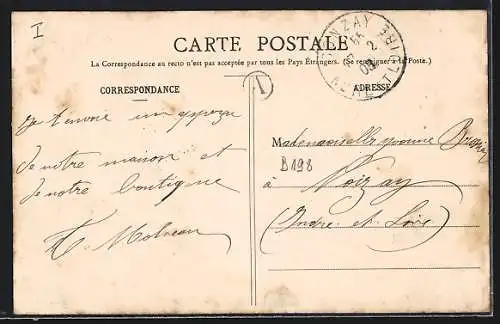 I
CARTE POSTALE
La Correspondance au recto n'est pas acceptée par tous les Pays Étrangers. (Se renseigner à la Poste.)
CORRESPONDANCE
A
ADRESSE
Je t'envoie un aperçu
de notre maison et
de notre boutique
Mademoiselle Yvonne
B198
à Noizay
(Indre-et-Loire)